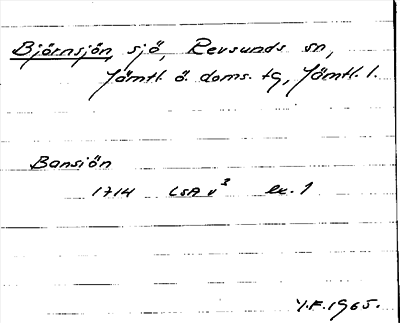 Björnsjön, sjö, Revsunds sn,
Jämtl. ö. doms. tg, Jämtl. l.
Bansjön
1714 LSA v³ ex. 1
Y.F. 1965.